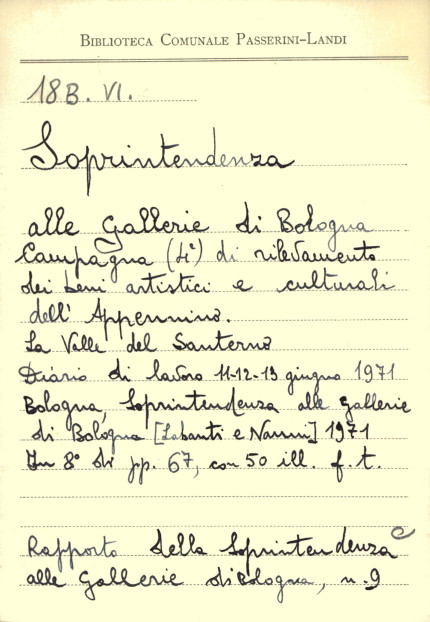 BIBLIOTECA COMUNALE PASSERINI-LANDI
18 B. VI.
Soprintendenza
alle Gallerie di Bologna
Campagna (4ª) di rilevamento
dei beni artistici e culturali
dell' Appennino.
La Valle del Santerno
Diario di lavoro 11-12-13 giugno 1971
Bologna, Soprintendenza alle Gallerie
di Bologna [Labanti e Nanni] 1971
In 8° di pp. 67, con 50 ill. f. t.
Rapporto della Soprintendenza
alle Gallerie di Bologna, n. 9